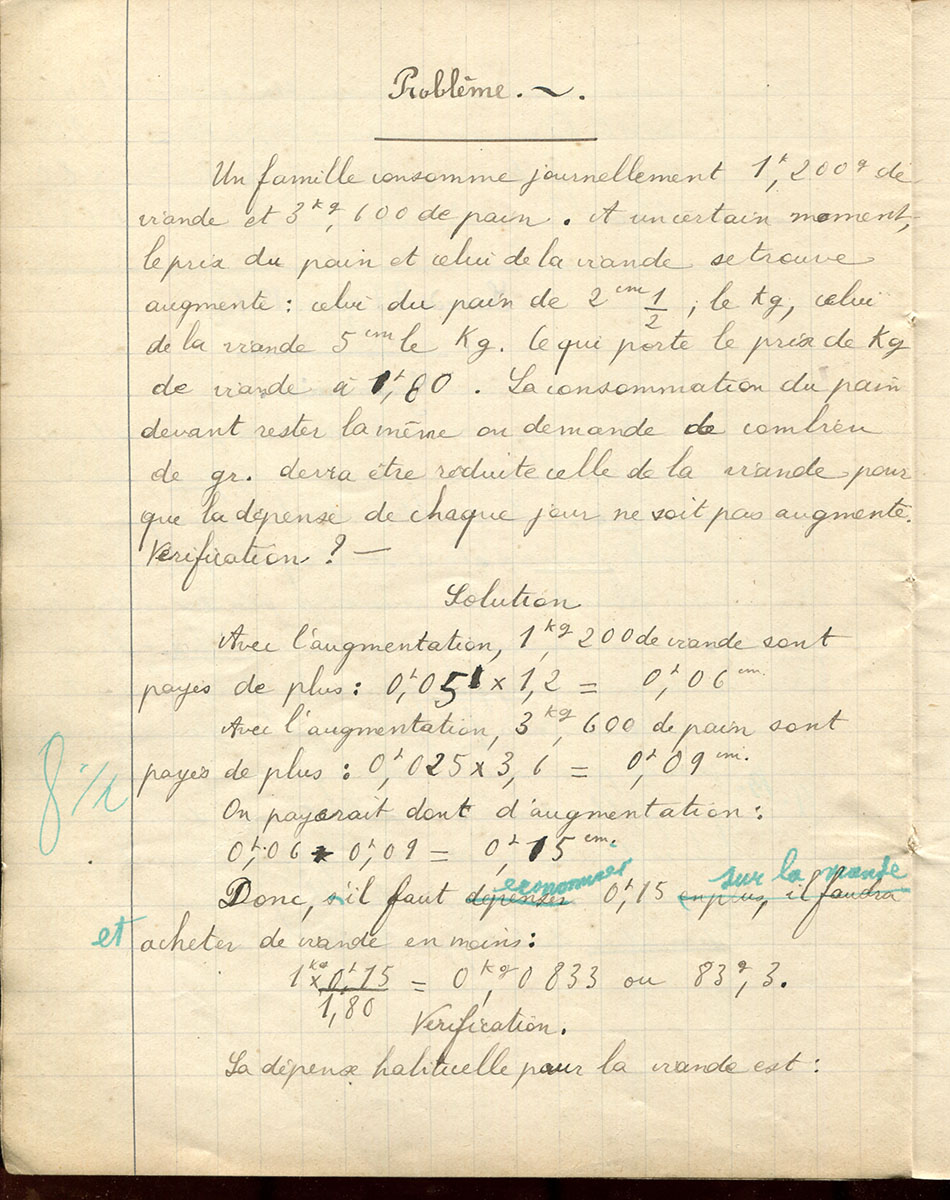 Problême. ~.
Un famille consomme journellement 1k,200g de
viande et 3kg,600 de pain. A un certain moment,
le prix du pain et celui de la viande se trouve
augmenté : celui du pain de 2 cm 1/2, le kg, celui
de la viande 5 cm le Kg. Ce qui porte le prix de Kg
de viande à 1f,80. La consommation du pain
devant rester la même on demande de combien
de gr. devra être réduite celle de la viande pour
que la dépense de chaque jour ne soit pas augmenté.
Vérification ? —
Solution
Avec l'augmentation, 1kg,200 de viande sont
payés de plus : 0f,05 x 1,2 = 0f,06 cm.
Avec l'augmentation, 3kg,600 de pain sont
payés de plus : 0f,025 x 3,6 = 0f,09 cm.
8
On payerait dont d'augmentation :
0f,06 + 0f,09 = 0f,15 cm.
economiser sur la viande
Donc, s'il faut dépenser 0f,15 en plus, il faudra
et acheter de viande en moins :
1kg x 0f,15 / 1,80 = 0kg,0833 ou 83g,3.
Vérification.
La dépense habituelle pour la viande est :